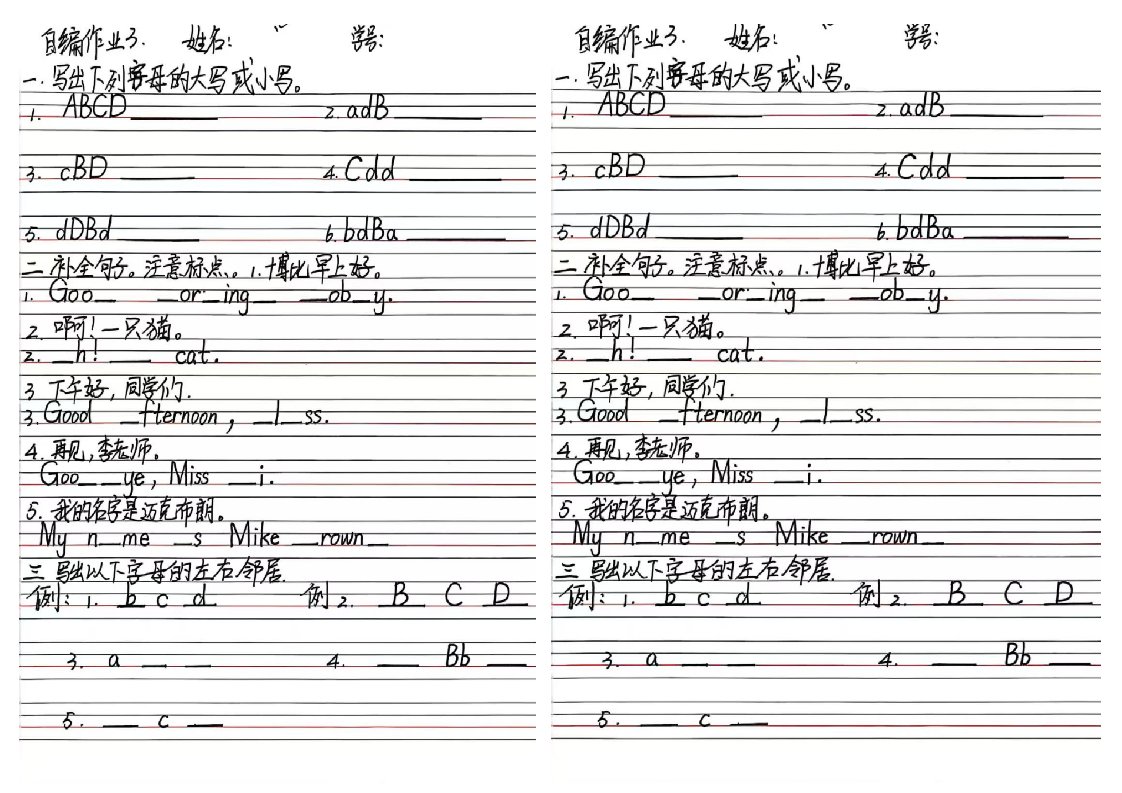 自编作业3. 姓名: 学号:
一.写出下列字母的大写或小写。
1. ABCD ______ 2. adB ______
3. cBD ______ 4. Cdd ______
5. dDBd ______ 6. bdBa ______
二 补全句子。注意标点。1.博比早上好。
1. Goo_ _or_ing_ _ob_y.
2. 啊!一只猫。
2. _h! __ cat.
3 下午好,同学们.
3. Good _fternoon, _l_ss.
4. 再见,李老师。
Goo_ _ye, Miss _i.
5. 我的名字是迈克布朗。
My n_me _s Mike _rown_
三 写出以下字母的左右邻居.
例: 1. b c d 例 2. B C D
3. a __ __ 4. __ Bb __
5. __ c __
自编作业3. 姓名: 学号:
一.写出下列字母的大写或小写。
1. ABCD ______ 2. adB ______
3. cBD ______ 4. Cdd ______
5. dDBd ______ 6. bdBa ______
二 补全句子。注意标点。1.博比早上好。
1. Goo_ _or_ing_ _ob_y.
2. 啊!一只猫。
2. _h! __ cat.
3 下午好,同学们.
3. Good _fternoon, _l_ss.
4. 再见,李老师。
Goo_ _ye, Miss _i.
5. 我的名字是迈克布朗。
My n_me _s Mike _rown_
三 写出以下字母的左右邻居.
例: 1. b c d 例 2. B C D
3. a __ __ 4. __ Bb __
5. __ c __